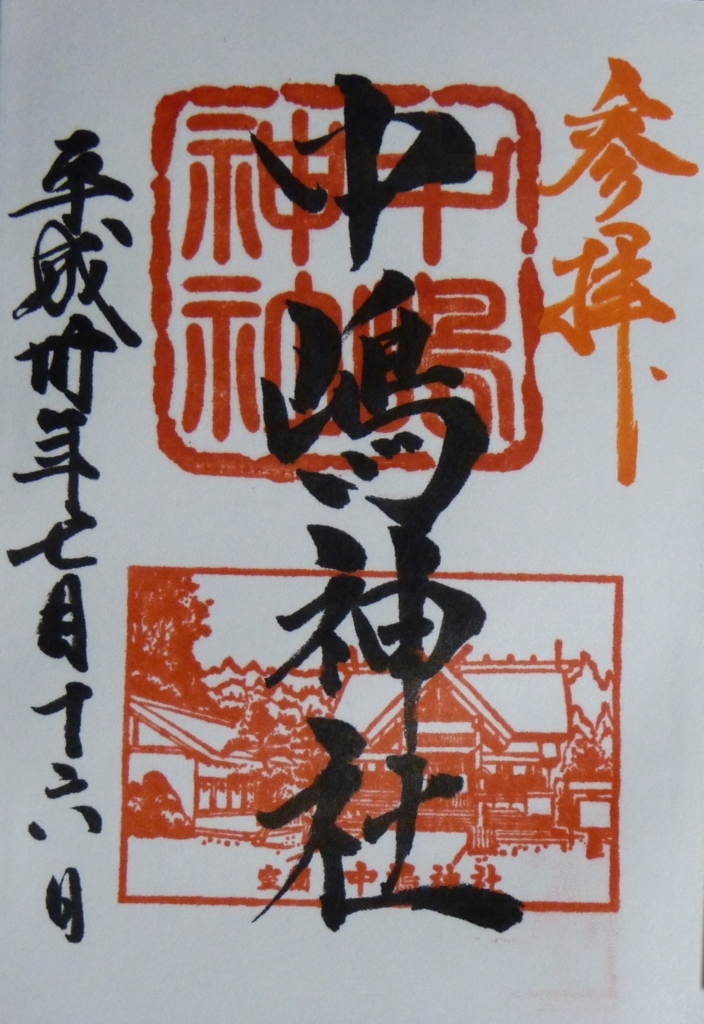 参拝
中嶋神社
平成卅年七月十六日
中嶋
神社
室蘭 中嶋神社